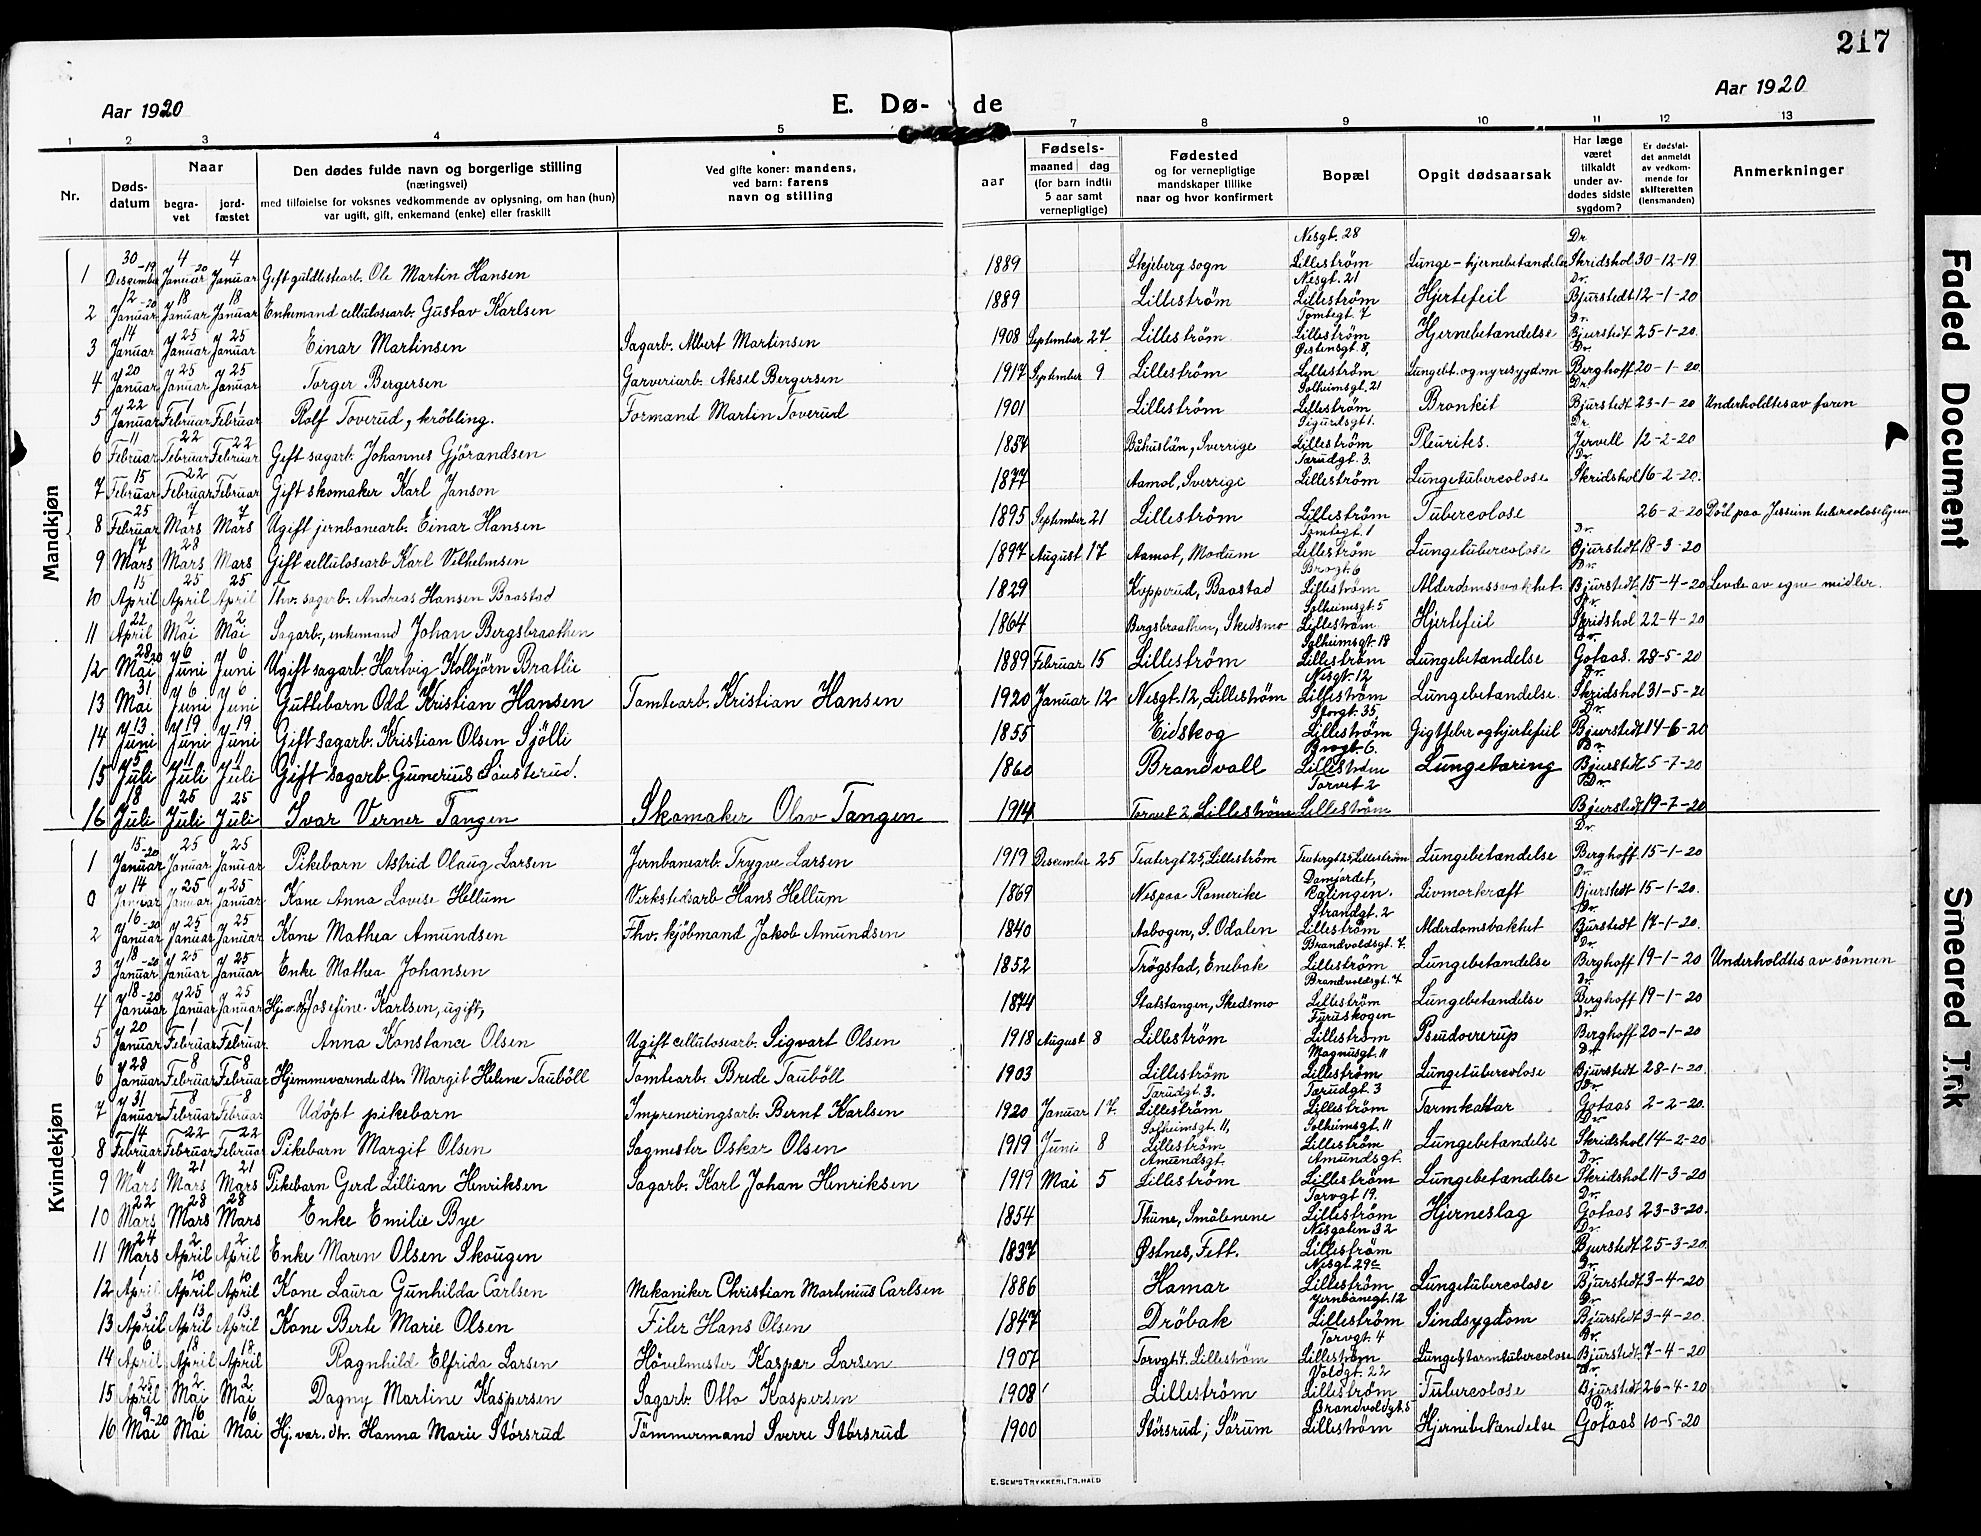 217
Aar 1920
E. Dø- de
Aar 1920
1 2 3 4 5 7 8 9 10 11 12 13
Nr.
Døds-datum
Naar
begra-vet
jord-fæstet
Den dødes fulde navn og borgerlige stilling
(næringsvei)
med tilføielse for voksnes vedkommende av oplysning, om han (hun)
var ugift, gift, enkemand (enke) eller fraskilt
Ved gifte koner: mandens,
ved barn: farens
navn og stilling
aar
Fødsels-
maaned dag
(for barn indtil
5 aar samt
vernepligtige)
Fødested
og for vernepligtige
mandskaper tillike
naar og hvor konfirmert
Bopæl
Opgit dødsaarsak
Har læge
været
tilkaldt
under av-
dødes sidste
sygdom?
Er dødsfal-
det anmeldt
av vedkom-
mende for
skifteretten
(lensmanden)
Anmerkninger
Mandkjøn
1 30 Desember -19 4 Januar 20 4 Januar Gift guldlistearb. Ole Martin Hansen 1889 Skjeberg sogn Nesgt. 28 Lilleström Lunge-hjernebetandelse Dr. Skridshol 30-12-19
2 12 Januar -20 18 Januar 18 Januar Enkemand cellulosearb. Gustav Karlsen 1889 Lilleström Nesgt. 21 Lilleström Hjertefeil Dr. Bjurstedt 12-1-20
3 14 Januar 25 Januar 25 Januar Einar Martinsen Sagarb. Albert Martinsen 1908 September 27 Lilleström Tomtegt. 7 Lilleström Hjernebetandelse Dr. Bjurstedt 25-1-20.
4 20 Januar 25 Januar 25 Januar Torger Bergersen Garveriarb. Aksel Bergersen 1917 September 9 Lilleström Østensgt. 8, Lilleström Lungebt. og nyresygdom Dr. Berghoff 20-1-20.
5 22 Januar 1 Februar 1 Februar Rolf Toverud, kröbling. Formand Martin Toverud 1901 Lilleström Solheimsgt. 21 Lilleström Bronkit Dr. Bjurstedt 23-1-20 Underholdtes av faren
6 11 Februar 22 Februar 22 Februar Gift sagarb. Johannes Gjörandsen 1857 Båhuslän, Sverrige Sigurdsgt 1. Lilleström Pleurites. Dr. Jervell 12-2-20
7 15 Februar 22 Februar Februar Gift skomaker Karl Janson 1877 Aamol, Sverrige Tærudgt. 3. Lilleström Lungetubercolose Dr. Skridshol 16-2-20.
8 25 Februar 7 Mars 7 Mars Ugift jernbanearb. Einar Hansen 1895 September 21 Lilleström Lilleström Tubercolose 26-2-20 Död paa Jessum tubercolosehjem
9 17 Mars 28 Mars Mars Gift cellulosearb Karl Vilhelmsen 1897 August 17 Aamot, Modum Tomtegt. 1 Lilleström Lungetubercolose Dr. Bjurstedt 18-3-20
10 15 April 25 April 25 April Fhv. sagarb. Andreas Hansen Baastad 1829 Kopperud, Baastad Brogt. 6 Lilleström Alderdomssvakhet. Dr. Bjurstedt 15-4-20 Levde av egne midler.
11 22 April 2 Mai 2 Mai Sagarb., enkemand Johan Bergsbraathen 1864 Bergsbraathen, Skedsmo Solheimsgt. 5 Lilleström Hjertefeil Dr. Skridshol 22-4-20
12 28 Mai 20 6 Juni 6 Juni Ugift sagarb. Hartvig Kolbjörn Bratlie 1889 Februar 15 Lilleström Solheimsgt. 18 Lilleström Lungebetandelse Dr. Gotaas. 28-5-20
13 31 Mai 6 Juni 6 Juni Guttebarn Odd Kristian Hansen Tomtearb. Kristian Hansen 1920 Januar 12 Nesgt. 12, Lilleström Nesgt. 12 Lilleström Lungebetandelse. Dr. Skridshol 31-5-20
14 13 Juni 19 Juni 19 Juni Gift sagarb. Kristian Olsen Sjölli 1855 Eidskog Storgt. 35 Lilleström Gigtfeber og hjertefeil Dr. Bjurstedt 14-6-20
15 5 Juli 11 Juli 11 Juli Gift sagarb. Gunerius Sausterud. 1860 Brandvall Brogt. 6. Lilleström Lungetæring Dr. Bjurstedt 5-7-20
16 18 Juli 25 Juli 25 Juli Ivar Verner Tangen Skomaker Olav Tangen 1914 Torvet 2, Lilleström Torvet 2 Lilleström Dr. Bjurstedt 19-7-20
Kvindekjøn
1 15 Januar -20 25 Januar 25 Januar Pikebarn Astrid Olaug Larsen Jernbanearb. Trygve Larsen 1919 Desember 25 Teatergt 25, Lilleström Teatergt 25, Lilleström Lungebetandelse Dr. Berghoff 15-1-20
0 14 Januar 25 Januar 25 Januar Kone Anna Lovise Hellum Verkstedsarb Hans Hellum 1869 Nes paa Romerike Damjordet, Rælingen. Livmorkræft Dr. Bjurstedt 15-1-20.
2 16 Januar -20 25 Januar 25 Januar Kone Mathea Amundsen Fhv. kjöbmand Jakob Amundsen 1840 Aabogen, S. Odalen Strandgt. 2 Lilleström Alderdomsvakhet Dr. Bjurstedt 17-1-20.
3 18 Januar -20 25 Januar 25 Januar Enke Mathea Johansen 1852 Trögstad, Enebak Brandvoldsgt. 7. Lilleström Lungebetandelse Dr. Berghoff 19-1-20 Underholdtes av sönnen
4 18 Januar -20 25 Januar 25 Januar Josefine Karlsen, ugift, 1874 Stalstangen, Skedsmo Brandvoldsgt. 4 Lilleström Lungebetandelse Dr. Berghoff 19-1-20
5 20 Januar 1 Februar 1 Februar Anna Konstance Olsen Ugift cellulosearb. Sigvart Olsen 1918 August 8 Lilleström Furuskogen Lilleström Pseudocroup Dr. Berghoff 20-1-20
6 28 Januar 8 Februar 8 Februar Hjemmeværende dtr. Margit Helene Tauböll Tomtearb. Brede Tauböll 1903 Lilleström Magnusgt. 11 Lilleström Lungetubercolose Dr. Bjurstedt 28-1-20.
7 31 Januar 8 Februar 8 Februar Udöpt pikebarn Impreneringsarb. Bernt Karlsen 1920 Januar 17. Tærudgt. 3. Lilleström Tærudgt. 3 Lilleström Tarmkattar Dr. Gotaas 2-2-20.
8 14 Februar 22 Februar 22 Februar Pikebarn Margit Olsen Sagmester Oskar Olsen 1919 Juni 8 Solheimsgt. 11, Lilleström Solheimsgt. 11 Lilleström Lungebetandelse Dr. Skridshol 14-2-20
9 11 Mars 21 Mars 21 Mars Pikebarn Gerd Lillian Henriksen Sagarb. Karl Johan Henriksen 1919 Mai 5 Amundsgt Lilleström Amundsgt. Lilleström Lungebetandelse Dr. Skridshol 11-3-20
10 22 Mars 28 Mars 28 Mars Enke Emilie Bye 1854 Thune, Smålenene Torvgt 19. Lilleström Hjerneslag Dr. Gotaas 23-3-20.
11 24 Mars 2 April 2 April Enke Maren Olsen Skougen 1837 Østnes, Fett. Nesgaten 32 Lilleström Dr. Bjurstedt 25-3-20.
12 1 April 10 April 10 April Kone Laura Gunhilda Carlsen Mekaniker Christian Martinius Carlsen 1886 Hamar Nesgt. 29c Lilleström Lungetubercolose Dr. Bjurstedt 3-4-20
13 3 April 13 April 13 April Kone Berte Marie Olsen Filer Hans Olsen 1847 Dröbak Jernbanegt. 12 Lilleström Sindsygdom Dr. Bjurstedt 3-4-20
14 6 April 18 April 18 April Ragnhild Elfrida Larsen Hövelmester Kaspar Larsen 1907 Torvgt 4. Lilleström Torvgt. 4 Lilleström Lunge & tarmtubercolose Dr. Bjurstedt 7-4-20
15 25 April 2 Mai 2 Mai Dagny Martine Kaspersen Sagarb. Otto Kaspersen 1908 Lilleström Voldgt. 22 Lilleström Tubercolose Dr. Bjurstedt 26-4-20
16 9 Mai -20 16 Mai 16 Mai Hj. vær. dtr. Hanna Marie Störsrud Tömmermand Sverre Störsrud 1900 Störsrud, Sörum Brandvoldgt. 5 Lilleström Hjernebetandelse Dr. Gotaas 10-5-20
E. SEM'S TRYKKERI, FR. HALD
Faded Document
Smeared Ink